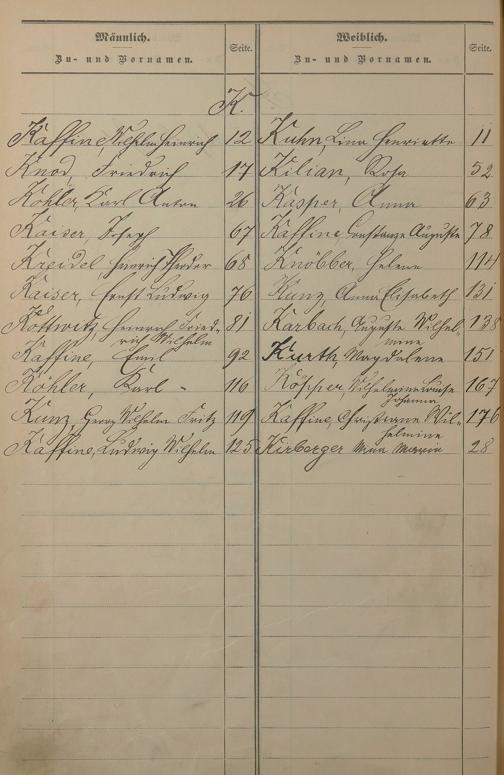 Männlich.
Zu- und Vornamen.
Seite.
Weiblich.
Zu- und Vornamen.
Seite.
K.
Kaffine, Wilhelm Heinrich 12
Knod, Friedrich 17
Köhler, Karl Anton 26
Kaiser, Joseph 67
Kreidel Heinrich 68
Kaiser, Ernst Ludwig 76
Kottwitz, Heinrich Fried- 81
rich Wilhelm
Kaffine, Emil 92
Köhler, Karl - 116
Kunz, Georg Wilhelm Fritz 119
Kaffine, Ludwig Wilhelm 125
Kuhn, Lina Henriette 11
Kilian, Rosa 52
Kasper, Anna 63
Kaffine, Constanze Auguste 78
Knöbber, Helene 114
Kunz, Anna Elisabeth 131
Karbach, Auguste Wilhel- 138
mine
Kurth, Magdalene 151
Köpper, Wilhelmine Luise 167
Johanna
Kaffine, Christiane Wil- 176
helmine
Kirberger Maria 28